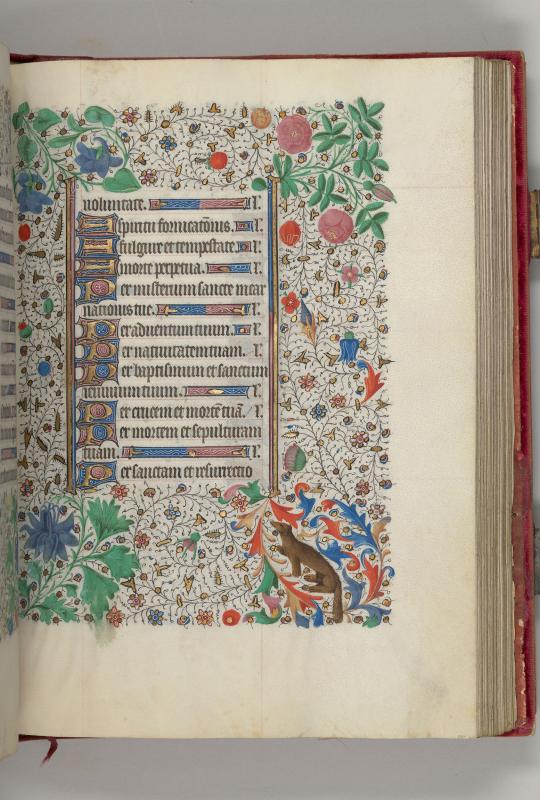 voluntate. R.
A spiritu fornicatõnis. R.
A fulgure et tempestate. R.
A morte perpetua. R.
Per misterium sancte incar
nationis tue. R.
Per aduentum tuum. R.
Per natiuitatem tuam. R.
Per baptismum et sanctum
ieiunium tuum. R.
Per crucem et mortẽ tuã. R.
Per mortem et sepulturam
tuam. R.
Per sanctam et resurrectio